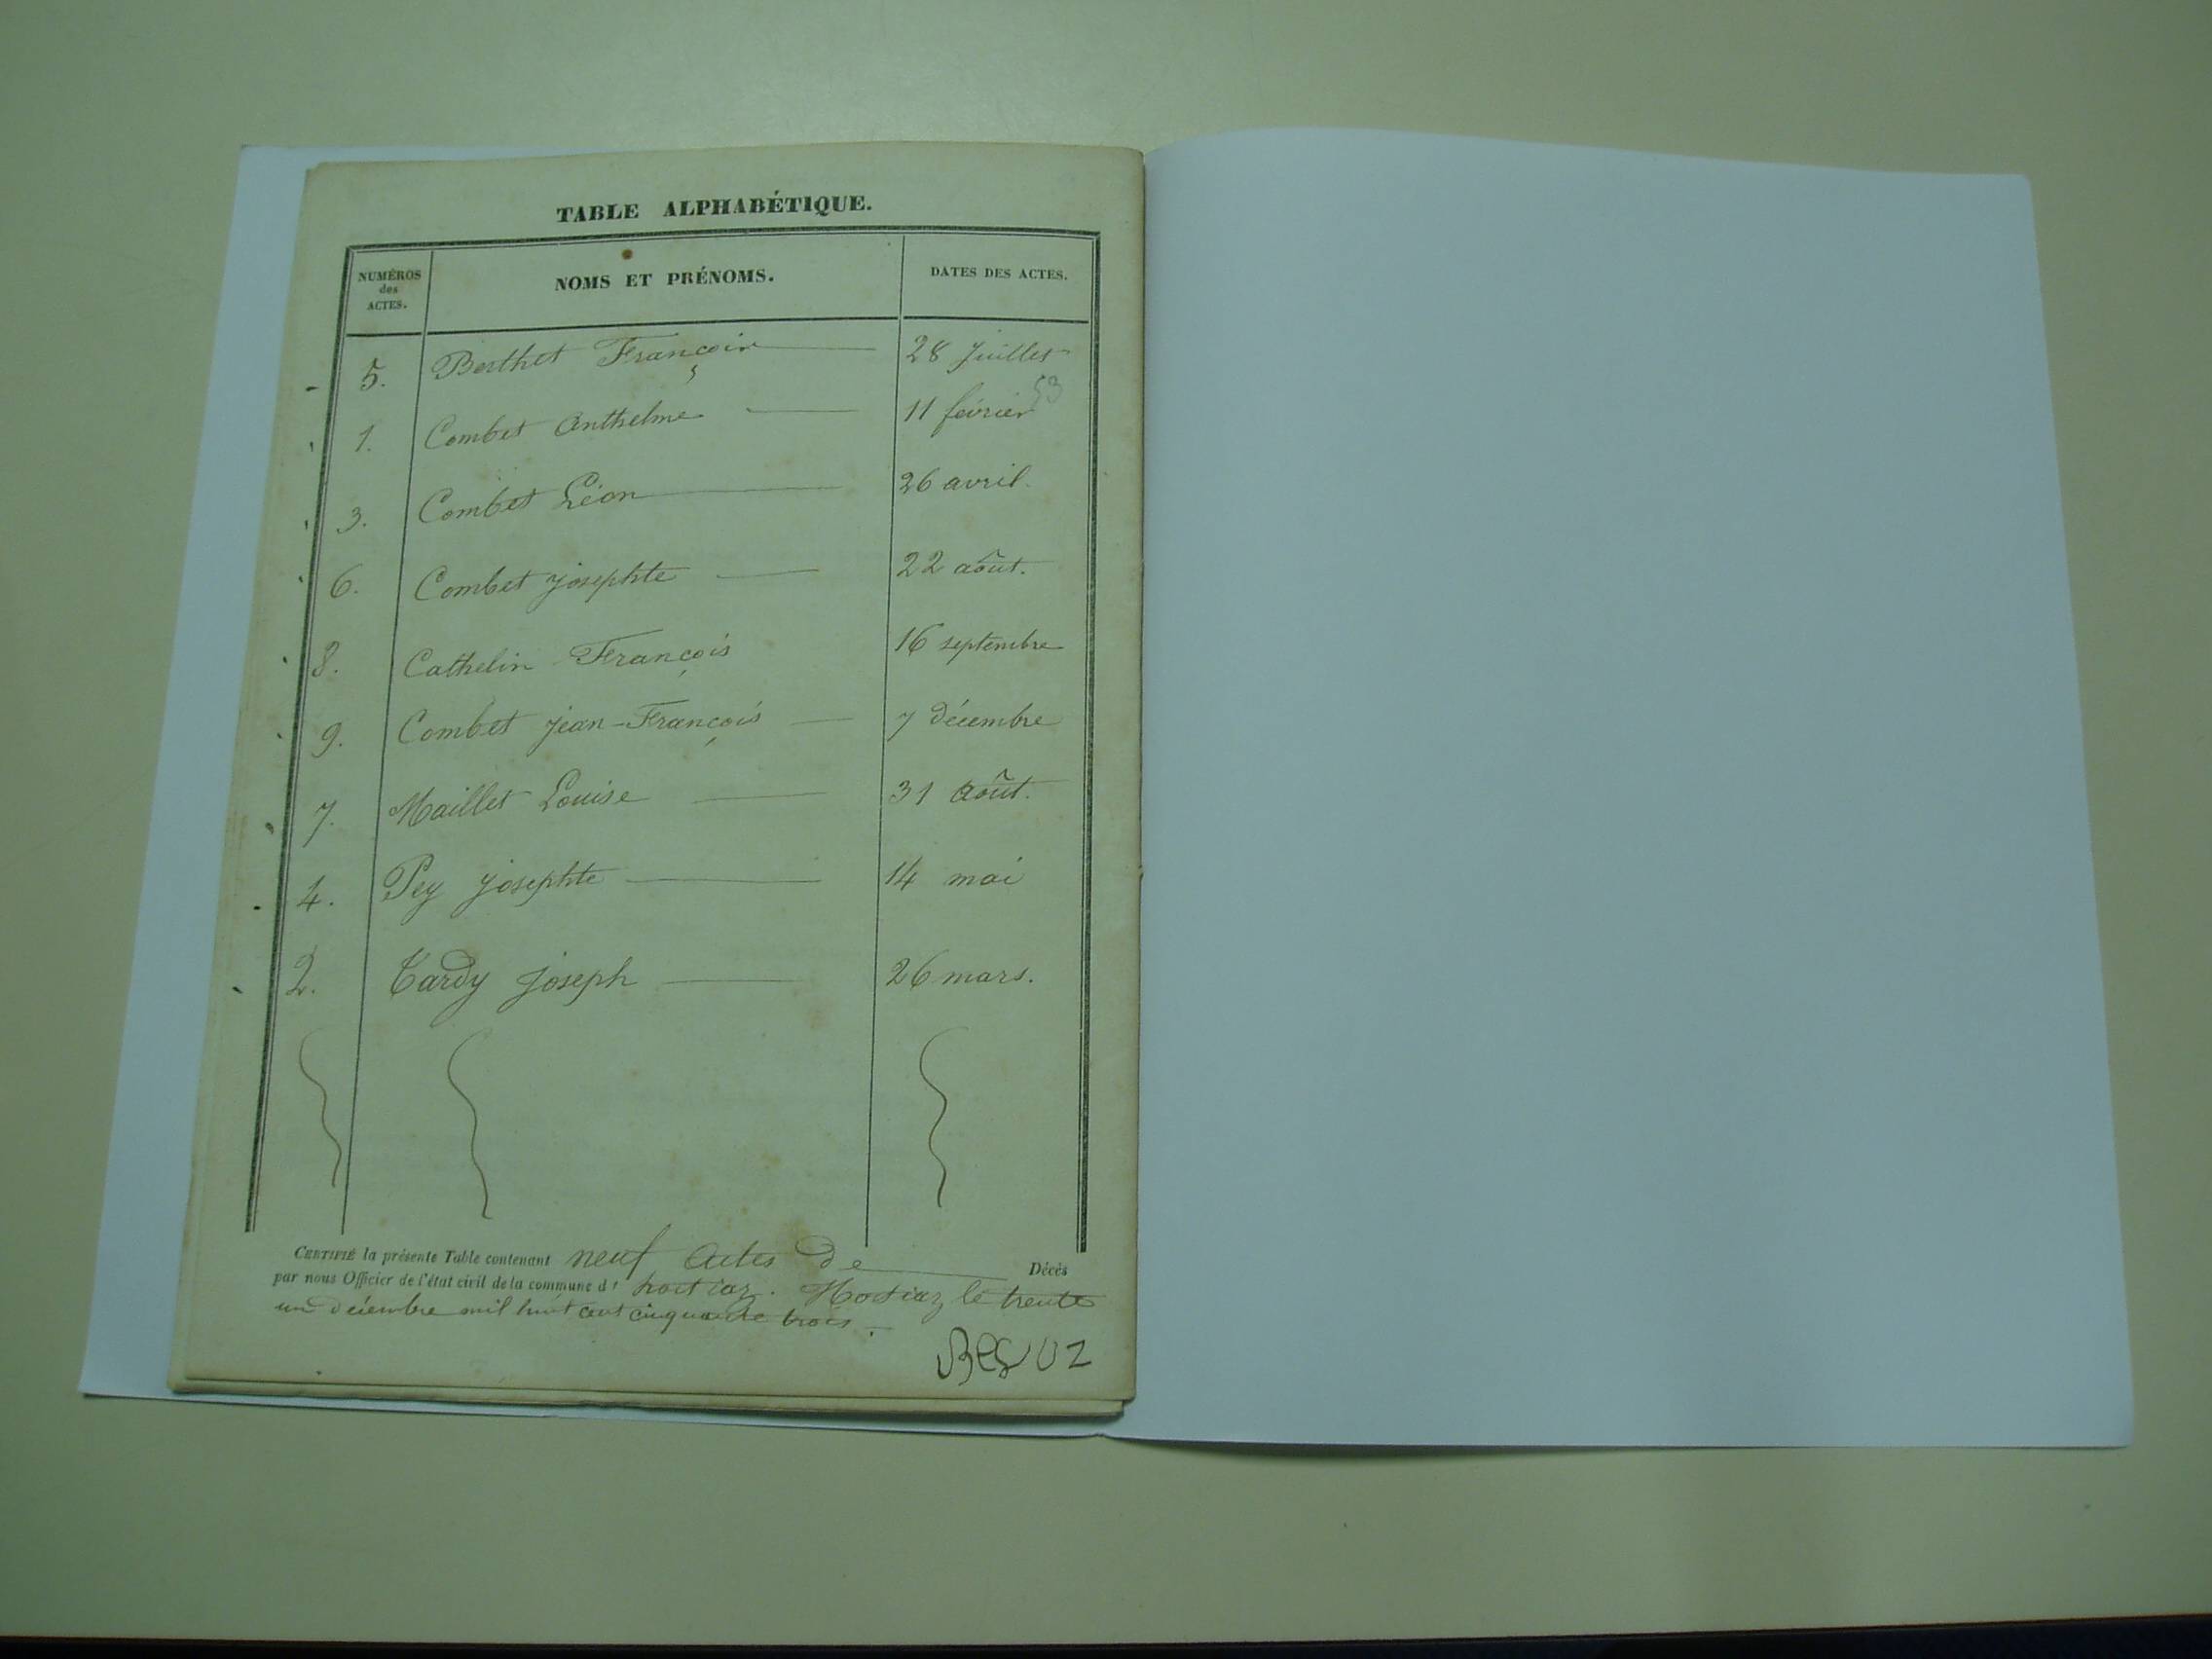 TABLE ALPHABÉTIQUE.
NUMÉROS des ACTES. NOMS ET PRÉNOMS. DATES DES ACTES.
5. Berthet François 28 Juillet
53
1. Combet Anthelme 11 février
3. Combet Léon 26 avril.
6. Combet josephte 22 août.
8. Cathelin François 16 septembre
9. Combet jean-François 7 décembre
7. Maillet Louise 31 août.
4. Pey josephte 14 mai
2. Tardy joseph 26 mars.
CERTIFIÉ la présente Table contenant neuf actes de Décès
par nous Officier de l'état civil de la commune d' hostiaz. Hostiaz le trente
un décembre mil huit cent cinquante trois.